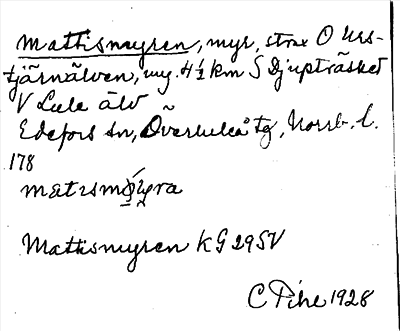 Mattismyren, myr, strax O Urs-
tjärnälven, ung. 4½ km S Djupträsket
V Lule älv
Edefors sn, Överluleå tg, Norrb. l.
178
Mattismyren KG 29 SV
C Pihe 1928